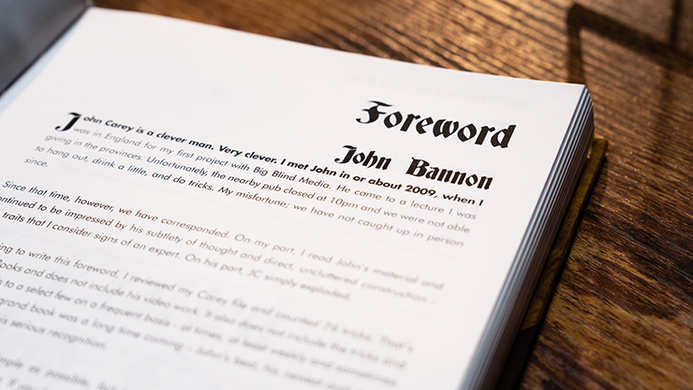 Foreword
John Bannon
John Carey is a clever man. Very clever. I met John in or about 2009, when I
was in England for my first project with Big Blind Media. He came to a lecture I was
giving in the provinces. Unfortunately, the nearby pub closed at 10pm and we were not able
to hang out, drink a little, and do tricks. My misfortune; we have not caught up in person
since.
Since that time, however, we have corresponded. On my part, I read John's material and
continued to be impressed by his subtlety of thought and direct, uncluttered construction -
traits that I consider signs of an expert. On his part, JC simply exploded.
to write this foreword, I reviewed my Carey file and counted 76 tricks. That's
books and does not include his video work. It also does not include the tricks and
to a select few on a frequent basis - at times, at least weekly and sometimes
grand book was a long time coming - John's best, his
serious recognition.
as possible, but